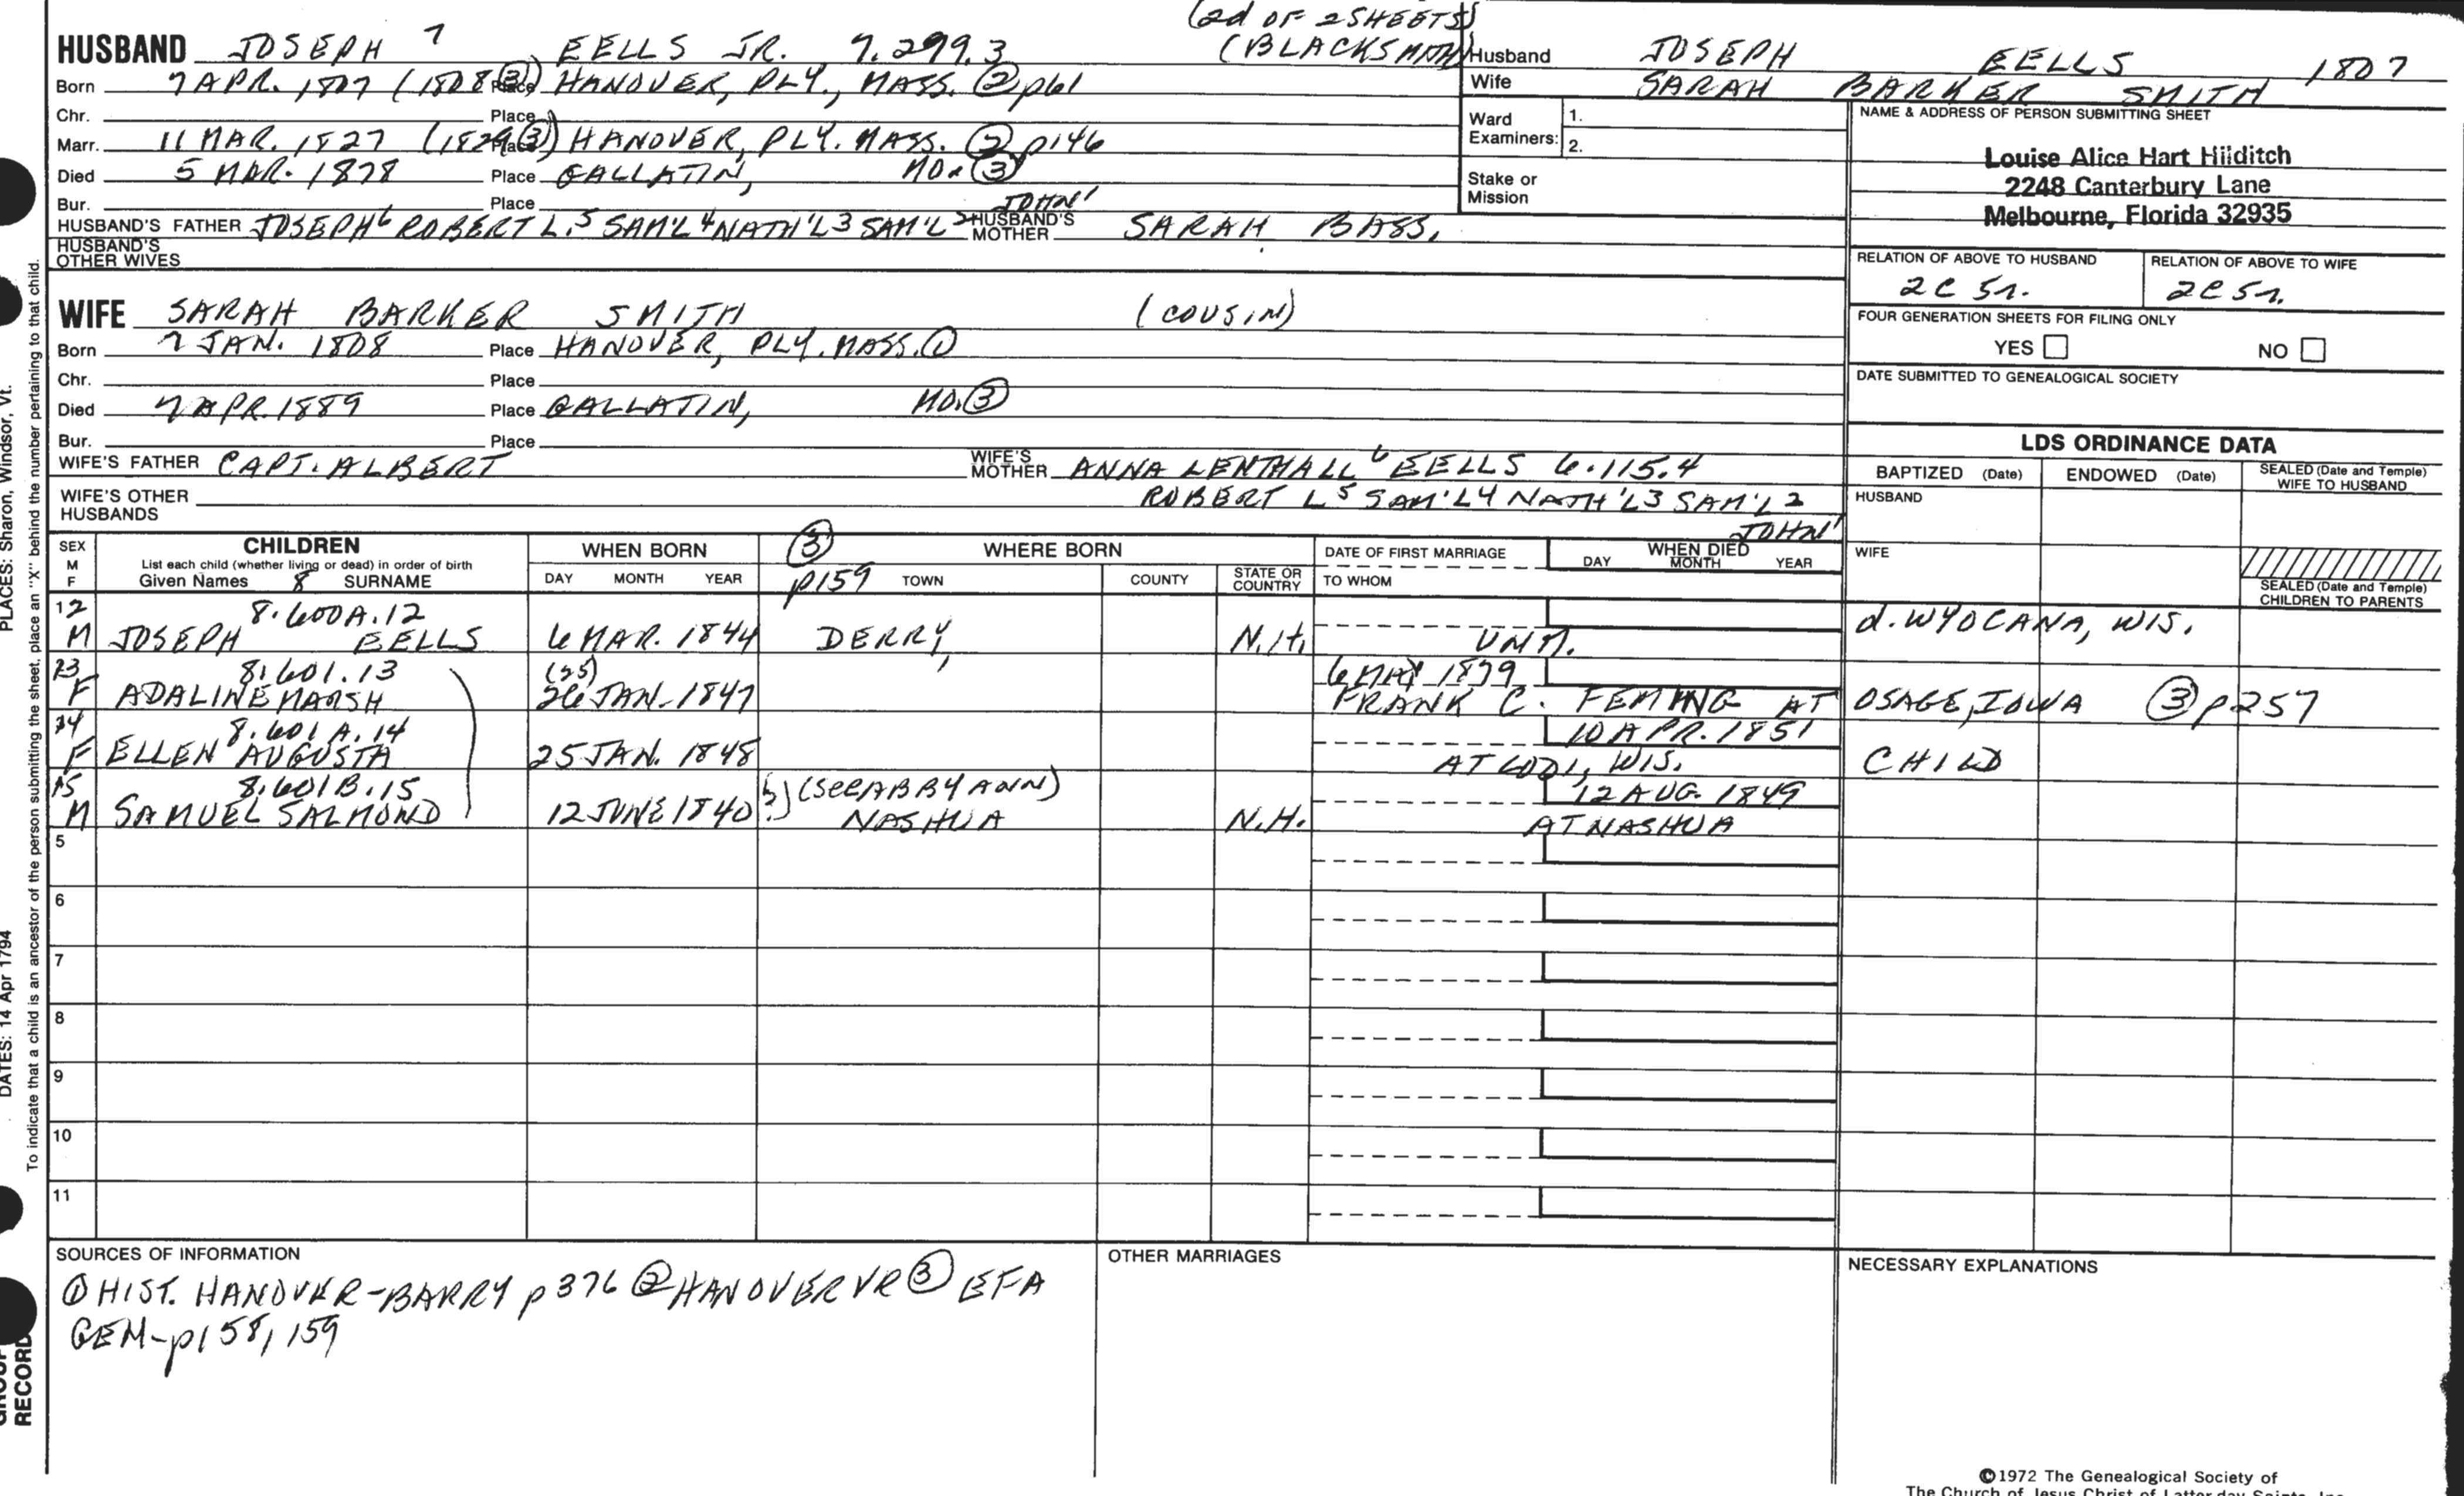 (2d OF 2 SHEETS)
HUSBAND JOSEPH 7 EELLS JR. 7.299.3 (BLACKSMITH)
Born 7 APR. 1807 (1808 ③) Place HANOVER, PLY., MASS. ② p61
Chr. Place
Marr. 11 MAR. 1827 (1829 ③) Place HANOVER, PLY. MASS. ② p146
Died 5 MAR. 1878 Place GALLATIN, MO. ③
Bur. Place
HUSBAND'S FATHER JOSEPH6 ROBERT L.5 SAM'L4 NATH'L3 SAM'L2 JOHN1 HUSBAND'S MOTHER SARAH BASS.
HUSBAND'S OTHER WIVES
WIFE SARAH BARKER SMITH (COUSIN)
Born 7 JAN. 1808 Place HANOVER, PLY. MASS. ①
Chr. Place
Died 7 APR. 1889 Place GALLATIN, MO. ③
Bur. Place
WIFE'S FATHER CAPT. ALBERT WIFE'S MOTHER ANNA LENTHALL6 EELLS 6.115.4
WIFE'S OTHER HUSBANDS ROBERT L5 SAM'L4 NATH'L3 SAM'L2
JOHN1
Husband JOSEPH EELLS 1807
Wife SARAH BARKER SMITH
Ward Examiners: 1.
2.
Stake or Mission
NAME & ADDRESS OF PERSON SUBMITTING SHEET
Louise Alice Hart Hilditch
2248 Canterbury Lane
Melbourne, Florida 32935
RELATION OF ABOVE TO HUSBAND RELATION OF ABOVE TO WIFE
2C 5r. 2C 5r.
FOUR GENERATION SHEETS FOR FILING ONLY
YES NO
DATE SUBMITTED TO GENEALOGICAL SOCIETY
LDS ORDINANCE DATA
BAPTIZED (Date) ENDOWED (Date) SEALED (Date and Temple) WIFE TO HUSBAND
HUSBAND
WIFE
SEALED (Date and Temple) CHILDREN TO PARENTS
SEX M F
CHILDREN
List each child (whether living or dead) in order of birth
Given Names 8 SURNAME
WHEN BORN
DAY MONTH YEAR
③ p159
WHERE BORN
TOWN COUNTY STATE OR COUNTRY
DATE OF FIRST MARRIAGE
TO WHOM
WHEN DIED
DAY MONTH YEAR
12 8.600A.12
M JOSEPH EELLS 6 MAR. 1844 DERRY, N.H. UNM. d. WYOCANA, WIS.
13 8.601.13 (25) 6 MAY 1879
F ADALINE MARSH 26 JAN. 1847 FRANK C. FEMING AT OSAGE, IOWA ③ p257
14 8.601A.14 10 APR. 1851
F ELLEN AUGUSTA 25 JAN. 1848 AT LODI, WIS. CHILD
15 8.601B.15 (SEE ABBY ANN) 12 AUG. 1849
M SAMUEL SALMOND 12 JUNE 1840 NASHUA N.H. AT NASHUA
5
6
7
8
9
10
11
SOURCES OF INFORMATION
① HIST. HANOVER-BARRY p 376 ② HANOVER VR ③ EFA
GEN-p158, 159
OTHER MARRIAGES
NECESSARY EXPLANATIONS
©1972 The Genealogical Society of
The Church of Jesus Christ of Latter-day Saints, Inc.
PLACES: Sharon, Windsor, Vt.
DATES: 14 Apr 1794
To indicate that a child is an ancestor of the person submitting the sheet, place an "X" behind the number pertaining to that child.
GROUP
RECORD